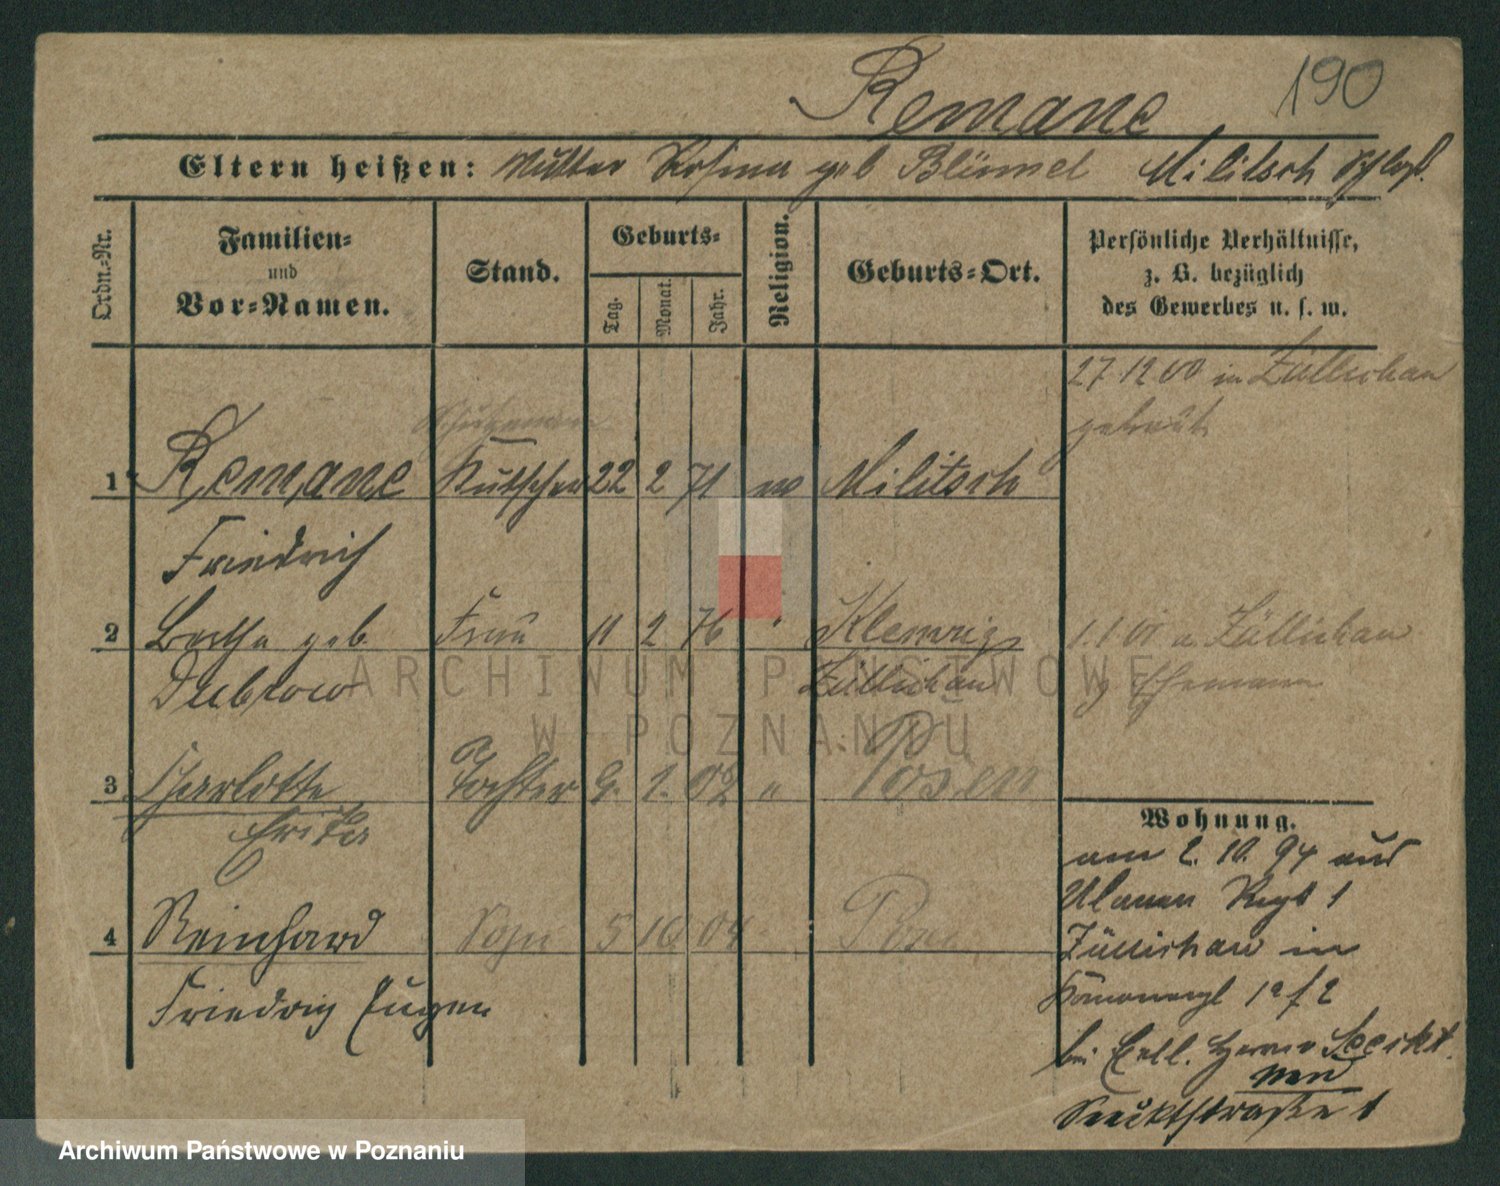 Remane 190
Eltern heißen: Mutter Rosina geb Blümel Militsch
Ordn.-Nr.
Familien-
und
Vor-Namen.
Stand.
Geburts-
Tag.
Monat.
Jahr.
Religion.
Geburts-Ort.
Persönliche Verhältnisse,
z. B. bezüglich
des Gewerbes u. s. w.
27 12 00 in Züllichau
getraut
Schutzmann
1 Remane Kutscher 22 2 71 ev Militsch
Friedrich
2 Bertha geb. Frau 11 2 76 " Klemzig 1.1 01 v. Züllichau
Dubrow Züllichau z Ehemann
3 Charlotte Tochter 9. 1. 02 " Posen
Erika
4 Reinhard Sohn 5 10 04 Posen
Friedrich Eugen
Wohnung.
am 2. 10. 94 aus
Ulanen Regt 1
Züllichau in
bei Exll. Herrn v Seeckt.
von
Seecktstraße 1
ARCHIWUM PAŃSTWOWE
W POZNANIU
Archiwum Państwowe w Poznaniu